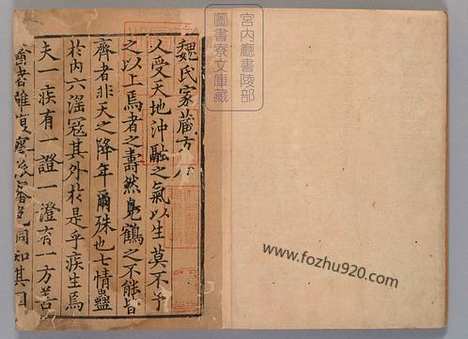 魏氏家藏方
人受天地沖融之氣以生莫不予
之以上焉者之壽然鳧鶴之不能皆
齊者非天之降年爾殊也七情蠱
於内六淫寇其外於是乎疾生焉
夫一疾有一證一證有一方善
宮内廳書陵部
圖書寮文庫藏
www.fozhu920.com